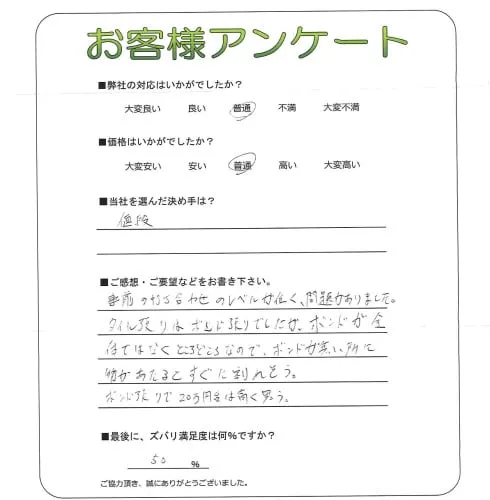 お客様アンケート
■弊社の対応はいかがでしたか？
大変良い 良い 普通 不満 大変不満
■価格はいかがでしたか？
大変安い 安い 普通 高い 大変高い
■当社を選んだ決め手は？
値段
■ご感想・ご要望などをお書き下さい。
事前の打ち合わせのレベルが低く、問題がありました。
タイル張りはボンド張りでしたが、ボンドが全
体ではなくところどころなので、ボンドが無い所に
物があたるとすぐに割れそう。
ボンド張りで20万円台は高く思う。
■最後に、ズバリ満足度は何％ですか？
50 %
ご協力頂き、誠にありがとうございました。